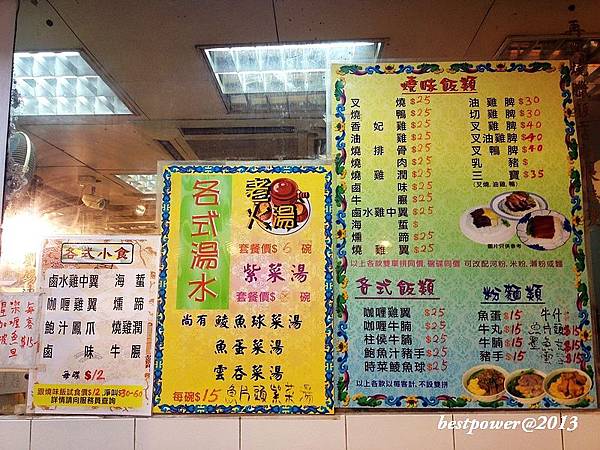 燒味飯類
叉燒$25
燒鴨$25
香妃雞$25
油雞$25
燒排骨$25
燒肉$25
燒雞潤$25
鹵味$25
牛𦟌$25
鹵水雞中翼$25
海蜇$
燻蹄$25
燒雞翼$25
油雞脾$30
切雞脾$30
叉雞脾$40
叉油雞脾$40
叉鴨脾$40
乳豬$
三寶$35
(叉燒,油雞,鴨)
圖片只供參考
以上各款雙單拼同價,碗碟同價 可改配河粉,米粉,瀨粉或麵
各式飯類
咖喱雞翼$25
咖喱牛腩$25
柱侯牛腩$25
鮑魚汁豬手$25
時菜鯪魚球$25
以上各款以每客計,不設雙拼
粉麵類
魚蛋$15
牛丸$15
牛腩$15
豬手$15
各式湯水
老火湯
套餐價$6碗
紫菜湯
套餐價$ 碗
尚有鯪魚球菜湯
魚蛋菜湯
雲吞菜湯
每碗$15 魚片頭紫菜湯
各式小食
鹵水雞中翼 海蜇
咖喱雞翼 燻蹄
鮑汁鳳爪 燒雞潤
鹵味 牛𦟌
每碟$12
跟燒味飯試食價$12 淨叫$30-60
詳情請向服務員查詢
bestpower@2013